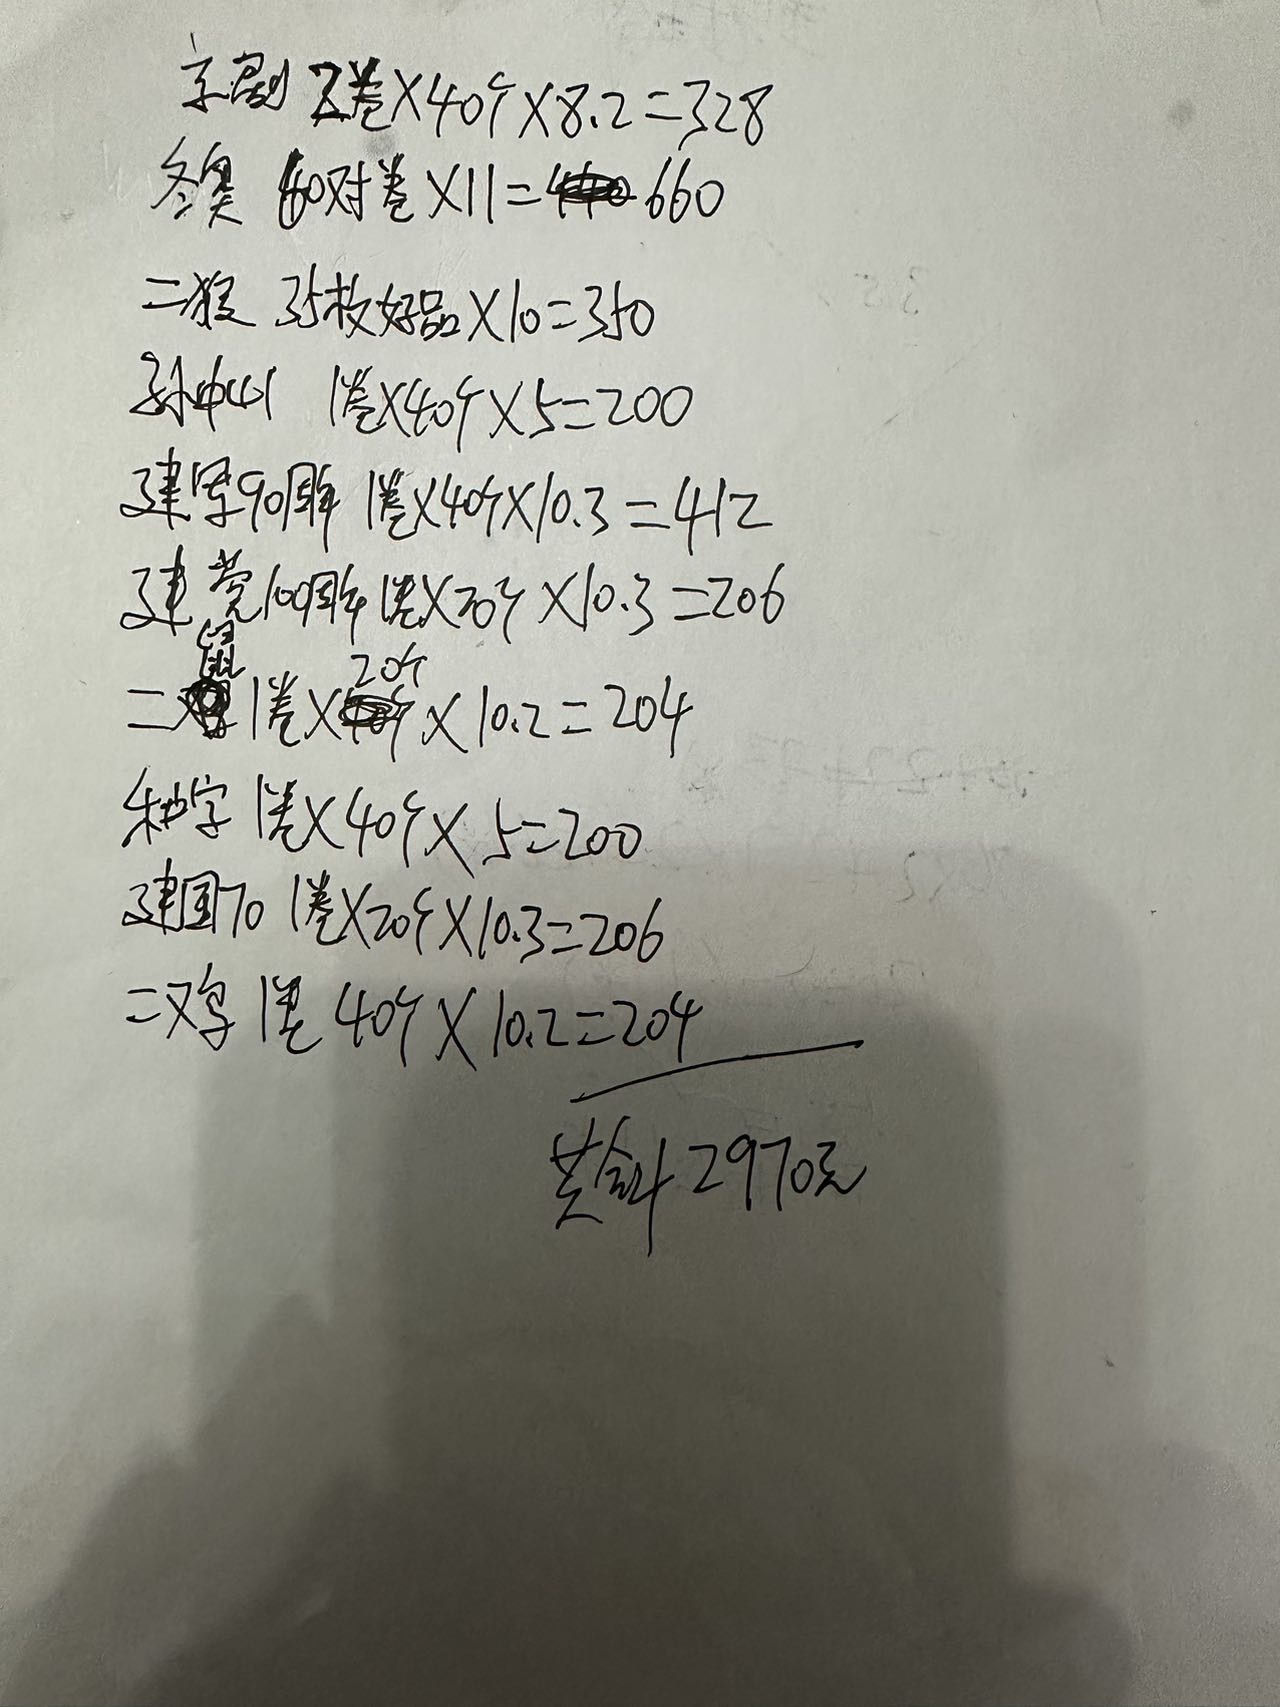 京剧 2卷×40个×8.2=328
冬奥 60对卷×11=660
二猴 35枚好品×10=350
孙中山 1卷×40个×5=200
建军90周年 1卷×40个×10.3=412
建党100周年 1卷×20个×10.3=206
二鼠 1卷×20个×10.2=204
和字 1卷×40个×5=200
建国70 1卷×20个×10.3=206
二鸡 1卷 40个×10.2=204
共合计2970元